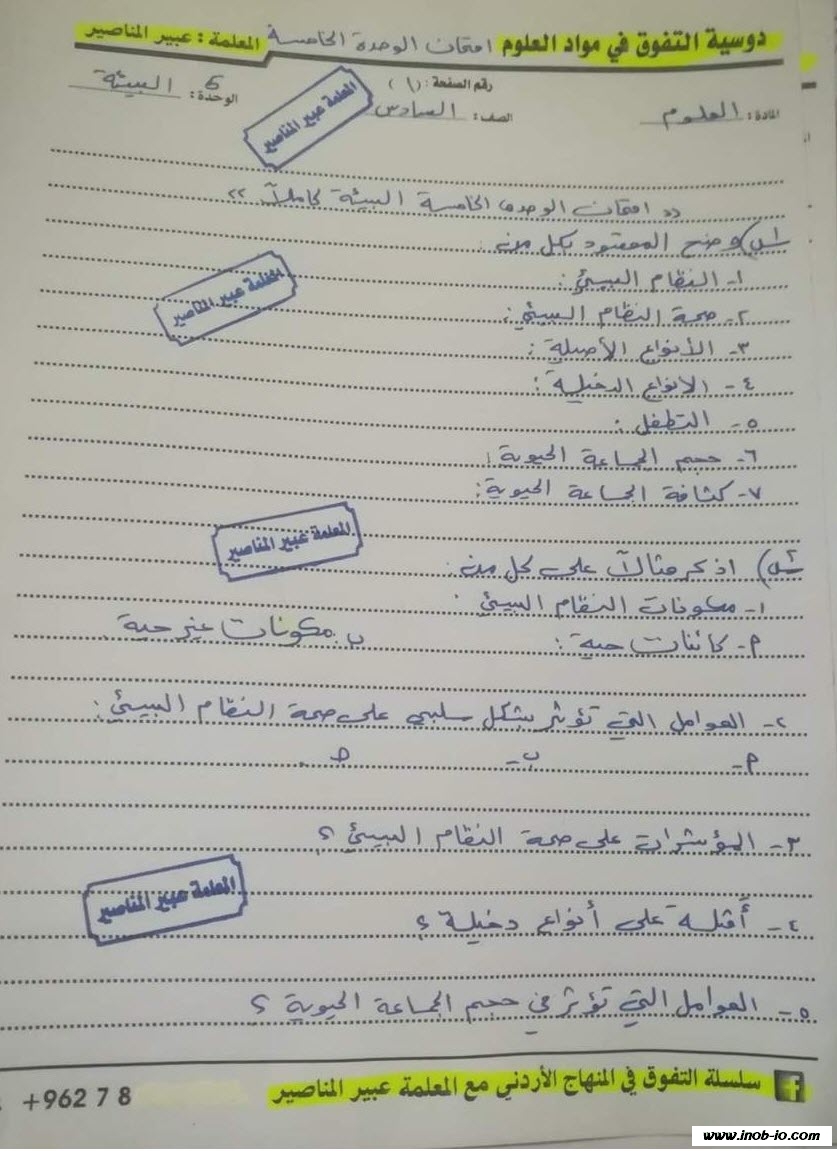 دوسية التفوق في مواد العلوم امتحان الوحدة الخامسة المعلمة : عبير المناصير
رقم الصفحة : (١)
المادة : العلوم الصف : السادس الوحدة : 5 البيئة
المعلمة عبير المناصير
" امتحان الوحدة الخامسة البيئة كاملاً "
س١) وضح المقصود بكل من :
١- النظام البيئي :
المعلمة عبير المناصير
٢- صحة النظام البيئي :
٣- الأنواع الأصيلة :
٤- الأنواع الدخيلة :
٥- التطفل :
٦- حجم الجماعة الحيوية :
٧- كثافة الجماعة الحيوية :
المعلمة عبير المناصير
س٢) اذكر مثالاً على كل من :
١- مكونات النظام البيئي :
أ- كائنات حية : ب- مكونات غير حية .
٢- العوامل التي تؤثر بشكل سلبي على صحة النظام البيئي :
أ- ب- ج-
٣- المؤشرات على صحة النظام البيئي ؟
المعلمة عبير المناصير
٤- أمثلة على أنواع دخيلة ؟
٥- العوامل التي تؤثر في حجم الجماعة الحيوية ؟
سلسلة التفوق في المنهاج الأردني مع المعلمة عبير المناصير
+962 7 8
www.inob-io.com